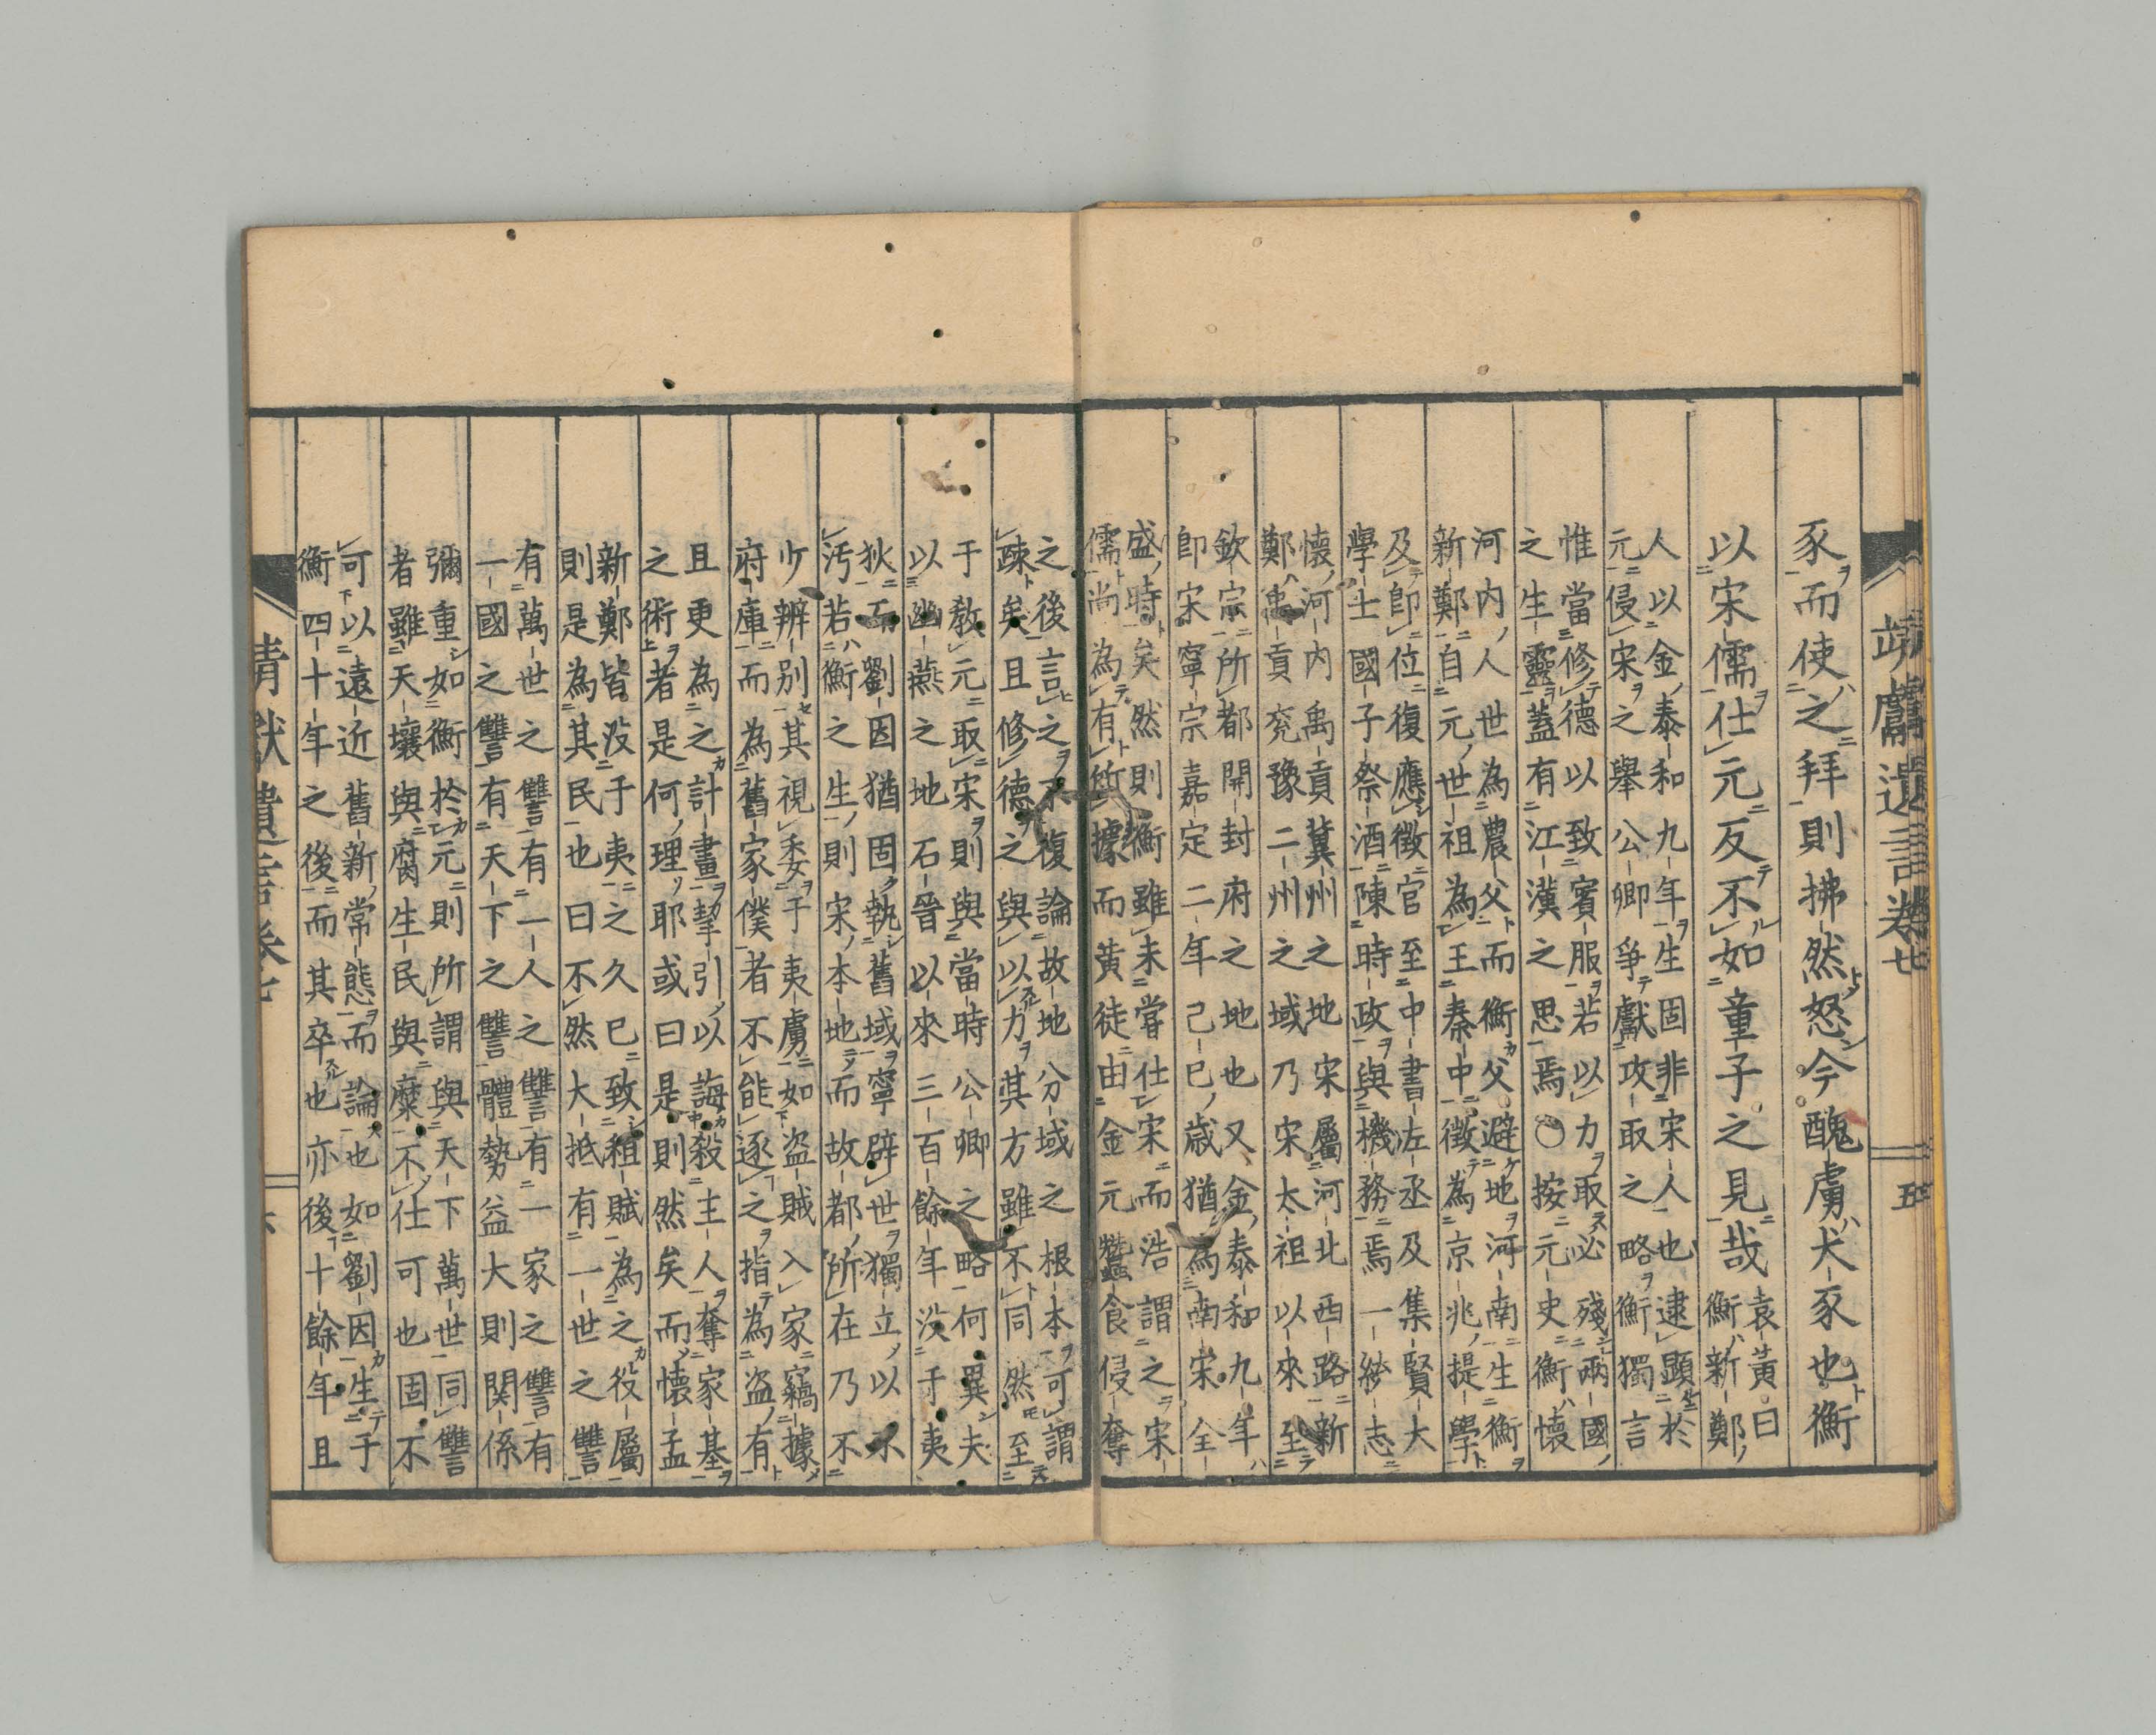 靖獻遺言卷七
五
豕而使之拜則拂然怒今醜虜犬豕也衡
以宋儒仕元反不如童子之見哉
袁黃曰
衡新鄭
人以金泰和九年生固非宋人也逮顯於
元侵宋之舉公卿爭獻攻取之略衡獨言
惟當修德以致賓服若以力取必殘兩國
之生靈蓋有江漢之思焉〇按元史衡懷
河内人世為農父而衡父避地河南生衡
新鄭自元世祖為王秦中徵為京兆提學
及即位復應徵官至中書左丞及集賢大
學士國子祭酒陳時政與機務焉一統志
懷河内禹貢冀州之地宋屬河北西路新
鄭禹貢兗豫二州之域乃宋太祖以來至
欽宗所都開封府之地也又金泰和九年
即宋寧宗嘉定二年己巳歳猶為南宋全
盛時矣然則衡雖未嘗仕宋而浩謂之宋
儒尚為有所據而黃徒由金元蠶食侵奪
之後言之不復論故地分域之根本可謂
疎矣且修德之與以力其方雖不同然至
于教元取宋則與當時公卿之略何異夫
以幽燕之地石晉以來三百餘年沒于夷
狄而劉因猶固執舊域寧辟世獨立以不
汚若衡之生則宋本地而故都所在乃不
少辨別其視委于夷虜如盜賊入家竊據
府庫而為舊家僕者不能逐之指為盜有
且更為之計畫挈引以誨殺主人奪家基
之術者是何理耶或曰是則然矣而懷孟
新鄭皆沒于夷之久已致租賦為之役屬
則是為其民也曰不然大抵有一世之讐
有萬世之讐有一人之讐有一家之讐有
一國之讐有天下之讐體勢益大則関係
彌重如衡於元則所謂與天下萬世同讐
者雖天壤與腐生民與糜不仕可也固不
可以遠近舊新常態而論也如劉因生于
衡四十年之後而其卒也亦後十餘年且
靖獻遺言卷七
六